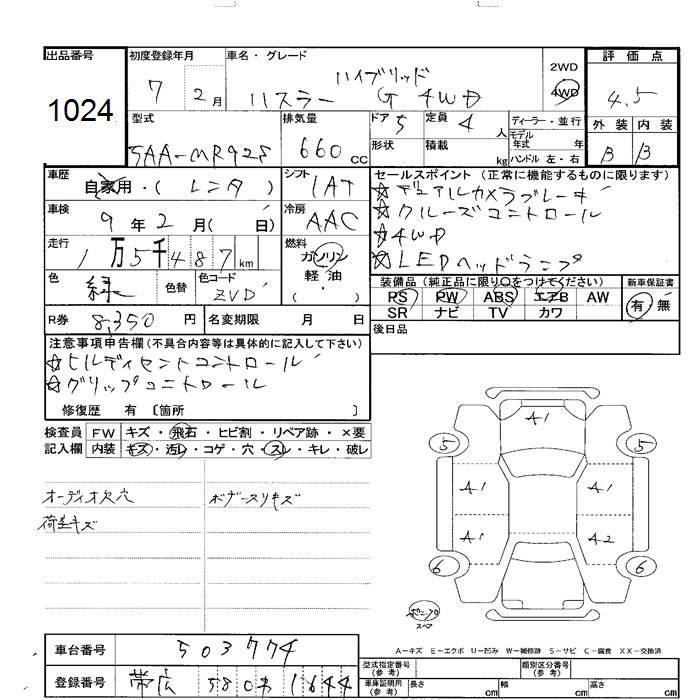 出品番号
1024
初度登録年月
7 2月
車名・グレード
ハイブリッド
ハスラー G 4WD
2WD
4WD
評価点
4.5
外装 内装
B B
型式
5AA-MR92S
排気量
660 cc
ドア 5
定員 4 人
形状
積載 kg
ディーラー・並行
モデル年式 年
ハンドル 左・右
車歴
自家用・( レンタ )
シフト
IAT
車検
9 年 2 月( 日)
冷房
AAC
走行
1万5千487km
燃料
ガソリン
軽油
・( )
色
緑
色替
色コード
ZVD
R券 8,350 円
名変期限 月 日
セールスポイント(正常に機能するものに限ります)
☆デュアルカメラブレーキ
☆クルーズコントロール
☆4WD
☆LEDヘッドランプ
装備品(純正品に限り○をつけてください)
PS PW ABS エアB AW
SR ナビ TV カワ
新車保証書
有 無
後日品
注意事項申告欄(不具合内容等は具体的に記入して下さい)
☆ヒルディセントコントロール
☆グリップコントロール
修復歴 有 〔箇所 〕
検査員記入欄
FW キズ・飛石・ヒビ割・リペア跡・×要
内装 キズ・汚レ・コゲ・穴・スレ・キレ・破レ
オーディオ欠穴
荷室キズ
A1
5 5
A1 A1
A1 A2
6 6
スペア
A-キズ E-エクボ U-凹み W-補修跡 S-サビ C-腐食 XX-交換済
車台番号 503774
登録番号 帯広 580 1644
型式指定番号(参考)
類別区分番号(参考)
車庫証明用(参考) 長さ cm 幅 cm 高さ cm